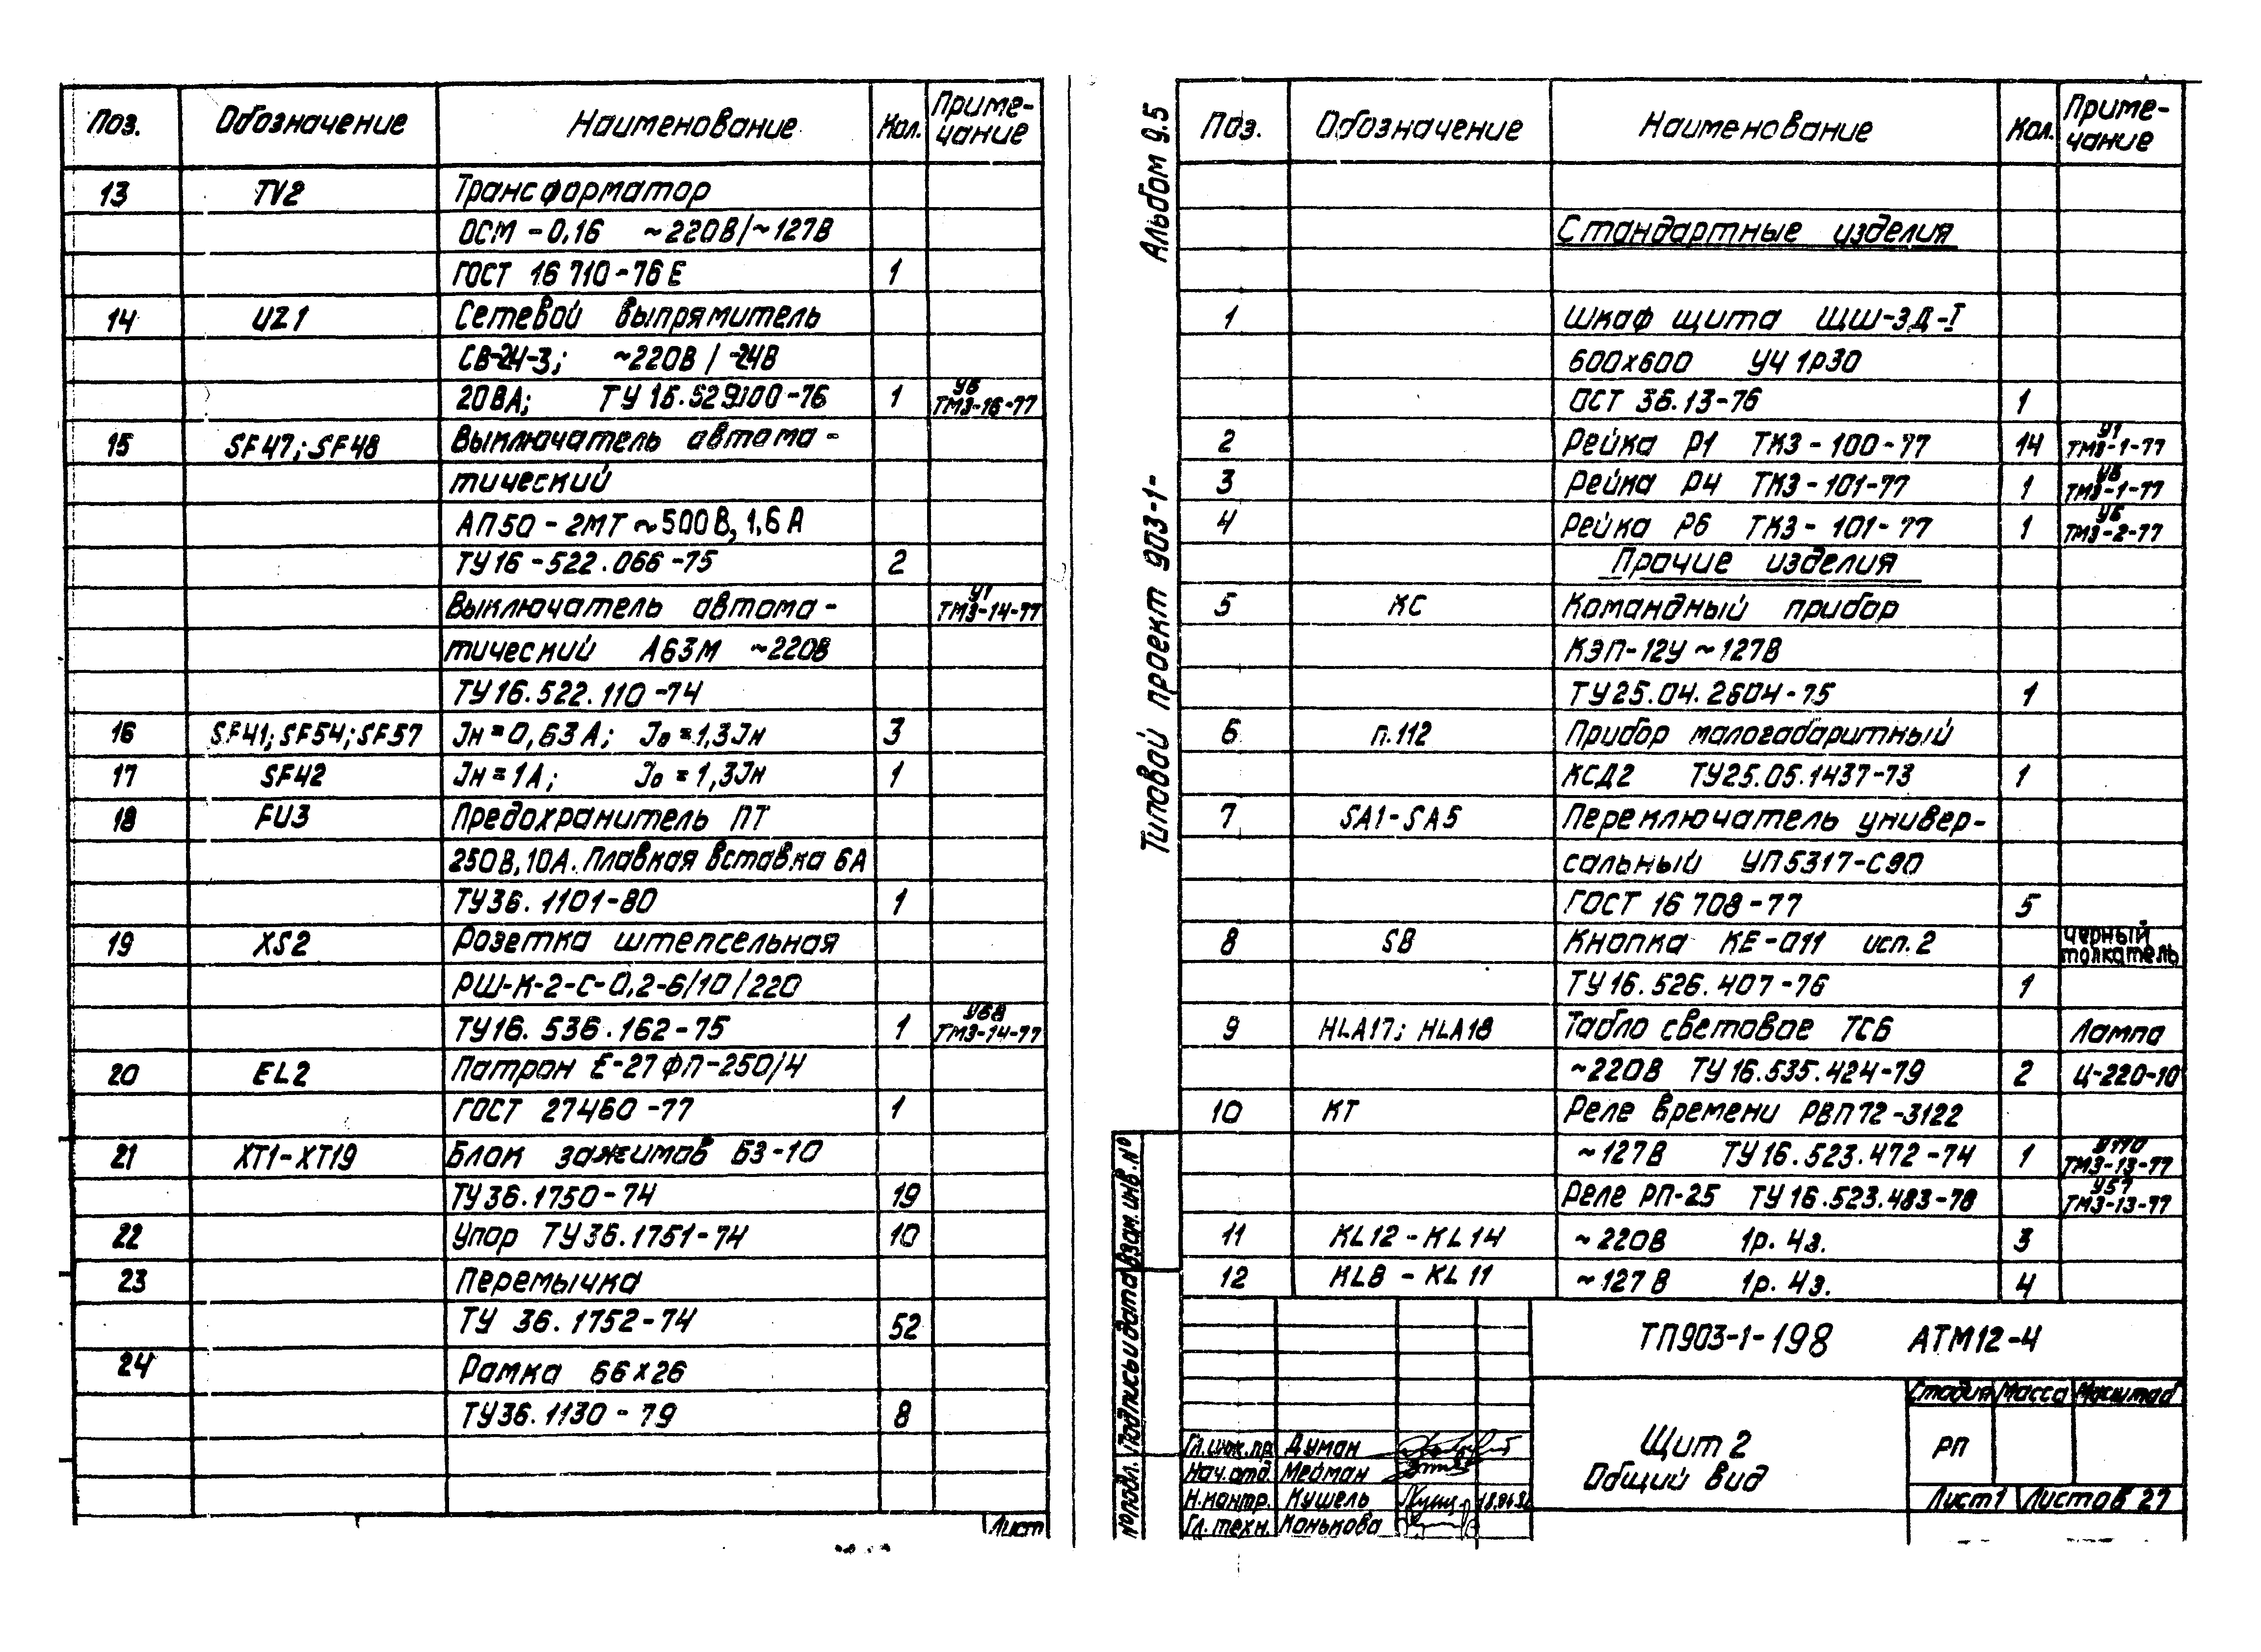 Поз. Обозначение Наименование Кол. Приме-
чание
13 TV2 Трансформатор
ОСМ-0,16 ~220В/~127В
ГОСТ 16710-76Е 1
14 UZ1 Сетевой выпрямитель
СВ-24-3; ~220В/-24В
20ВА; ТУ 16.529.100-76 1 У6
ТМ3-16-77
15 SF47; SF48 Выключатель автома-
тический
АП50-2МТ ~500В, 1,6А
ТУ16-522.066-75 2
Выключатель автома- У1
ТМ3-14-77
тический А63М ~220В
ТУ16.522.110-74
16 SF41; SF54; SF57 Jн=0,63А; Jо=1,3Jн 3
17 SF42 Jн=1А; Jо=1,3Jн 1
18 FU3 Предохранитель ПТ
250В, 10А. Плавкая вставка 6А
ТУ36.1101-80 1
19 XS2 Розетка штепсельная
РШ-К-2-С-0,2-6/10/220
ТУ16.536.162-75 1 У68
ТМ3-14-77
20 EL2 Патрон Е-27 ФП-250/4
ГОСТ 27460-77 1
21 XT1-XT19 Блок зажимов БЗ-10
ТУ36.1750-74 19
22 Упор ТУ36.1751-74 10
23 Перемычка
ТУ 36.1752-74 52
24 Рамка 66х26
ТУ36.1130-79 8
Лист
Альбом 9.5
Типовой проект 903-1-
Поз. Обозначение Наименование Кол. Приме-
чание
Стандартные изделия
1 Шкаф щита ЩШ-ЗД-I
600х600 УЧ 1Р30
ОСТ 36.13-76 1
2 Рейка Р1 ТК3-100-77 14 У1
ТМ3-1-77
3 Рейка Р4 ТК3-101-77 1
ТМ3-1-77
4 Рейка Р6 ТК3-101-77 1 У6
ТМ3-2-77
Прочие изделия
5 КС Командный прибор
КЭП-12У ~127В
ТУ25.04.2604-75 1
6 п.112 Прибор малогабаритный
КСД2 ТУ25.05.1437-73 1
7 SA1-SA5 Переключатель универ-
сальный УП5317-С90
ГОСТ 16708-77 5
8 SB Кнопка КЕ-011 исп.2 черный
толкатель
ТУ16.526.407-76 1
9 HLA17; HLA18 Табло световое ТСБ Лампа
~220В ТУ16.535.424-79 2 Ц-220-10
10 КТ Реле времени РВП72-3122
~127В ТУ16.523.472-74 1
ТМ3-13-77
Реле РП-25 ТУ16.523.483-78 У57
ТМ3-13-77
11 KL12-KL14 ~220В 1р. 4з. 3
12 KL8-KL11 ~127В 1р. 4з. 4
№подл. Подпись и дата Взам.инв.№
ТП903-1-198 АТМ12-4
Щит 2
Общий вид
Стадия Масса Масштаб
РП
Лист 1 Листов 27
Гл.инж.пр. Думан
Нач.отд. Мейман
Н.контр. Кушель
Гл.техн. Конькова